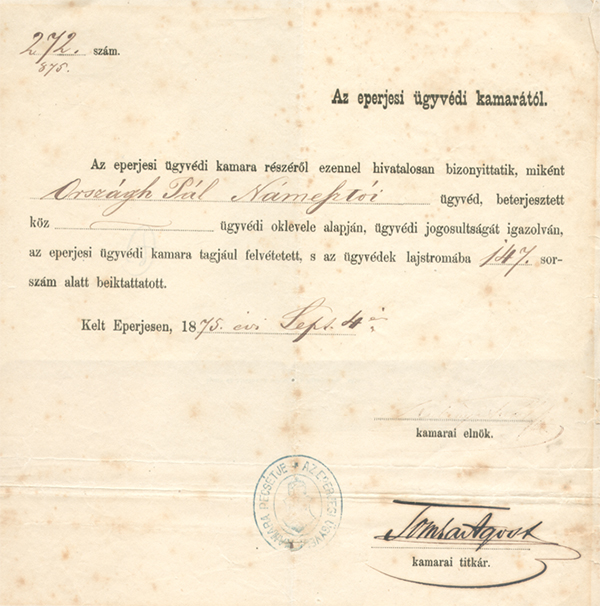 272. szám.
875.
Az eperjesi ügyvédi kamarától.
Az eperjesi ügyvédi kamara részéről ezennel hivatalosan bizonyittatik, miként
Országh Pál Námesztói ügyvéd, beterjesztett
köz ügyvédi oklevele alapján, ügyvédi jogosultságát igazolván,
az eperjesi ügyvédi kamara tagjául felvétetett, s az ügyvédek lajstromába 147. sor-
szám alatt beiktattatott.
Kelt Eperjesen, 1875. évi Sept. 4én
kamarai elnök.
AZ EPERJESI ÜGYVÉDI KAMARA PECSÉTJE
kamarai titkár.